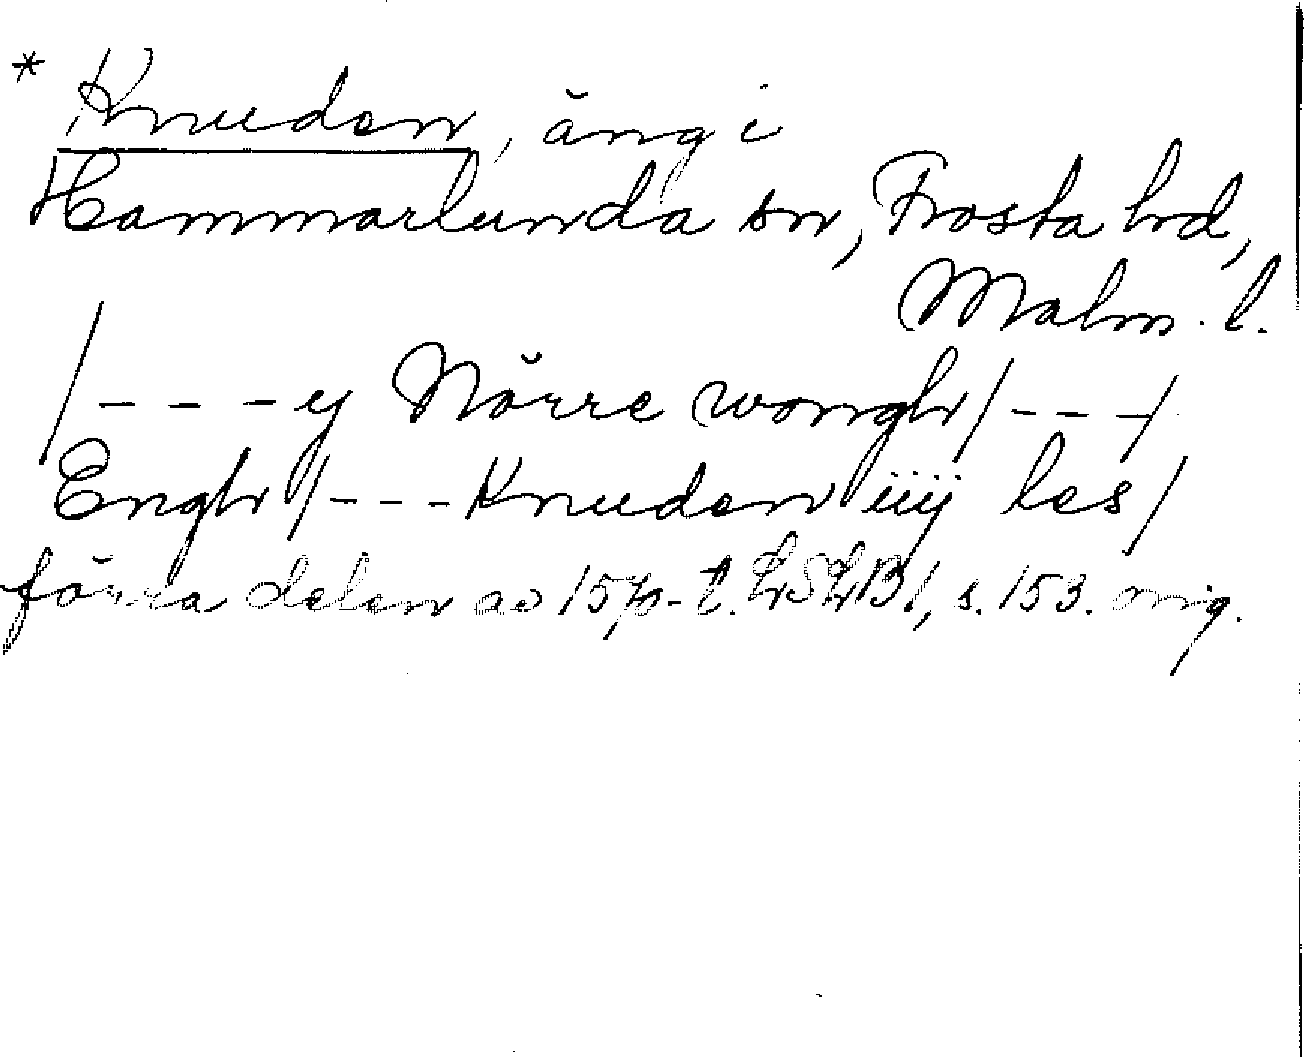 * Knuden, äng i
Hammarlunda sn, Frosta hd,
Malm. l.
/---y Nörre wongh/---/
Engh/---Knuden iiij les/
förra delen av 15 -t. LSLB 1, s. 153. orig.